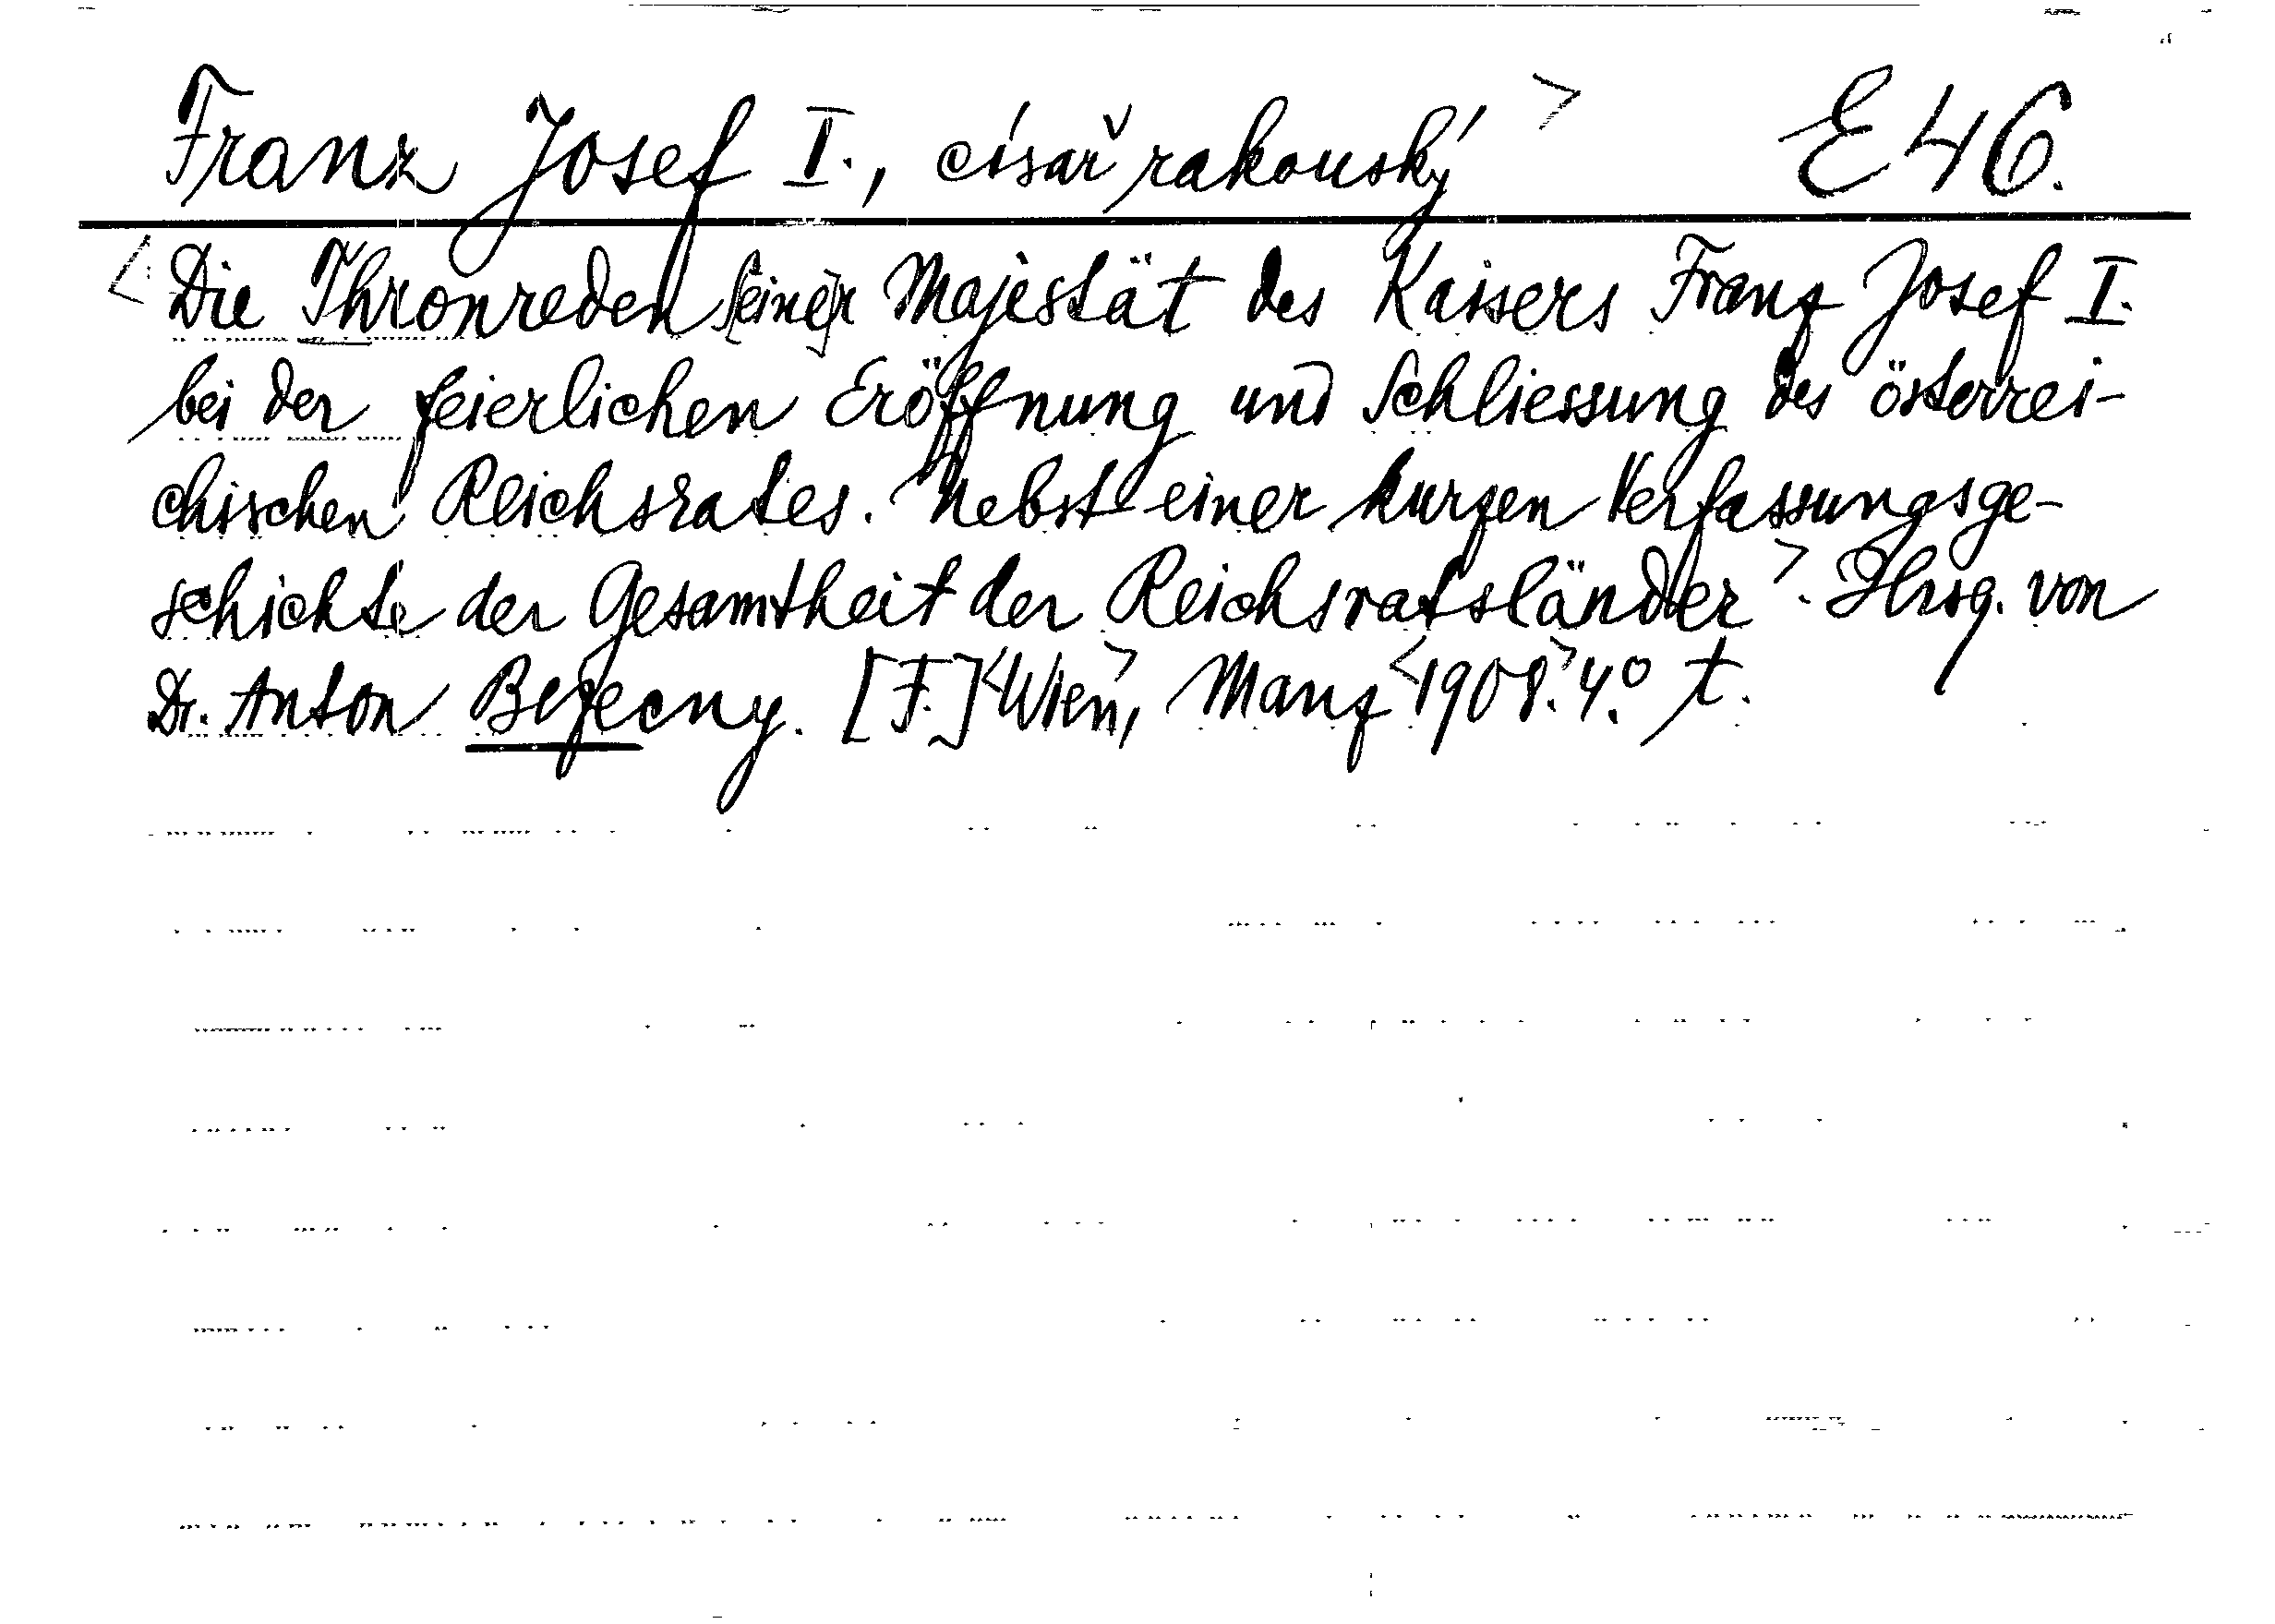 Franz Josef I., císař rakouský > E 46.
<Die Thronreden Sein[e]r Majestät des Kaisers Franz Josef I.
bei der feierlichen Eröffnung und Schliessung des österrei-
chischen Reichsrates. Nebst einer kurzen Verfassungsge-
schichte der Gesamtheit der Reichsratsländer>. Hrsg. von
Dr. Anton Bezecny. [F.] <Wien>, Manz <1908.> 4.° t.